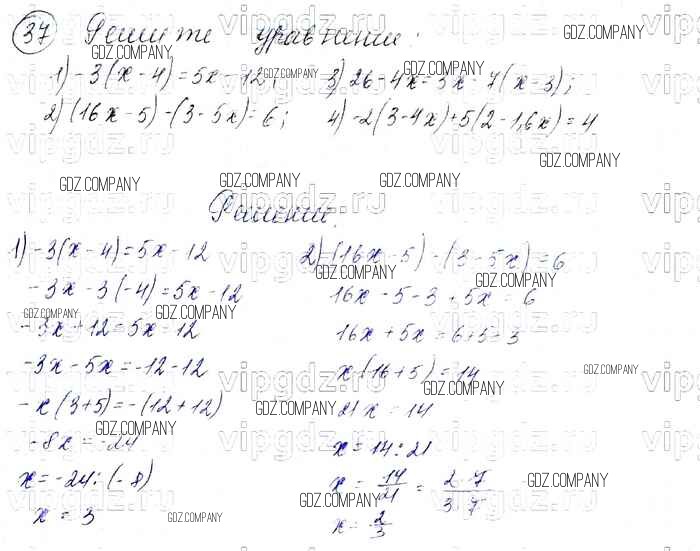 37 Решите уравнения:
1) -3(x-4)=5x-12; 3) 26-4x=3x-7(x-3);
2) (16x-5)-(3-5x)=6; 4) -2(3-4x)+5(2-1,6x)=4
Решение.
1) -3(x-4)=5x-12
-3x-3(-4)=5x-12
-3x+12=5x-12
-3x-5x=-12-12
-x(3+5)=-(12+12)
-8x=-24
x=-24:(-8)
x=3
2) (16x-5)-(3-5x)=6
16x-5-3+5x=6
16x+5x=6+5+3
x(16+5)=14
21x=14
x=14:21
x=14/21=2·7/3·7
x=2/3
GDZ.COMPANY
vipgdz.ru